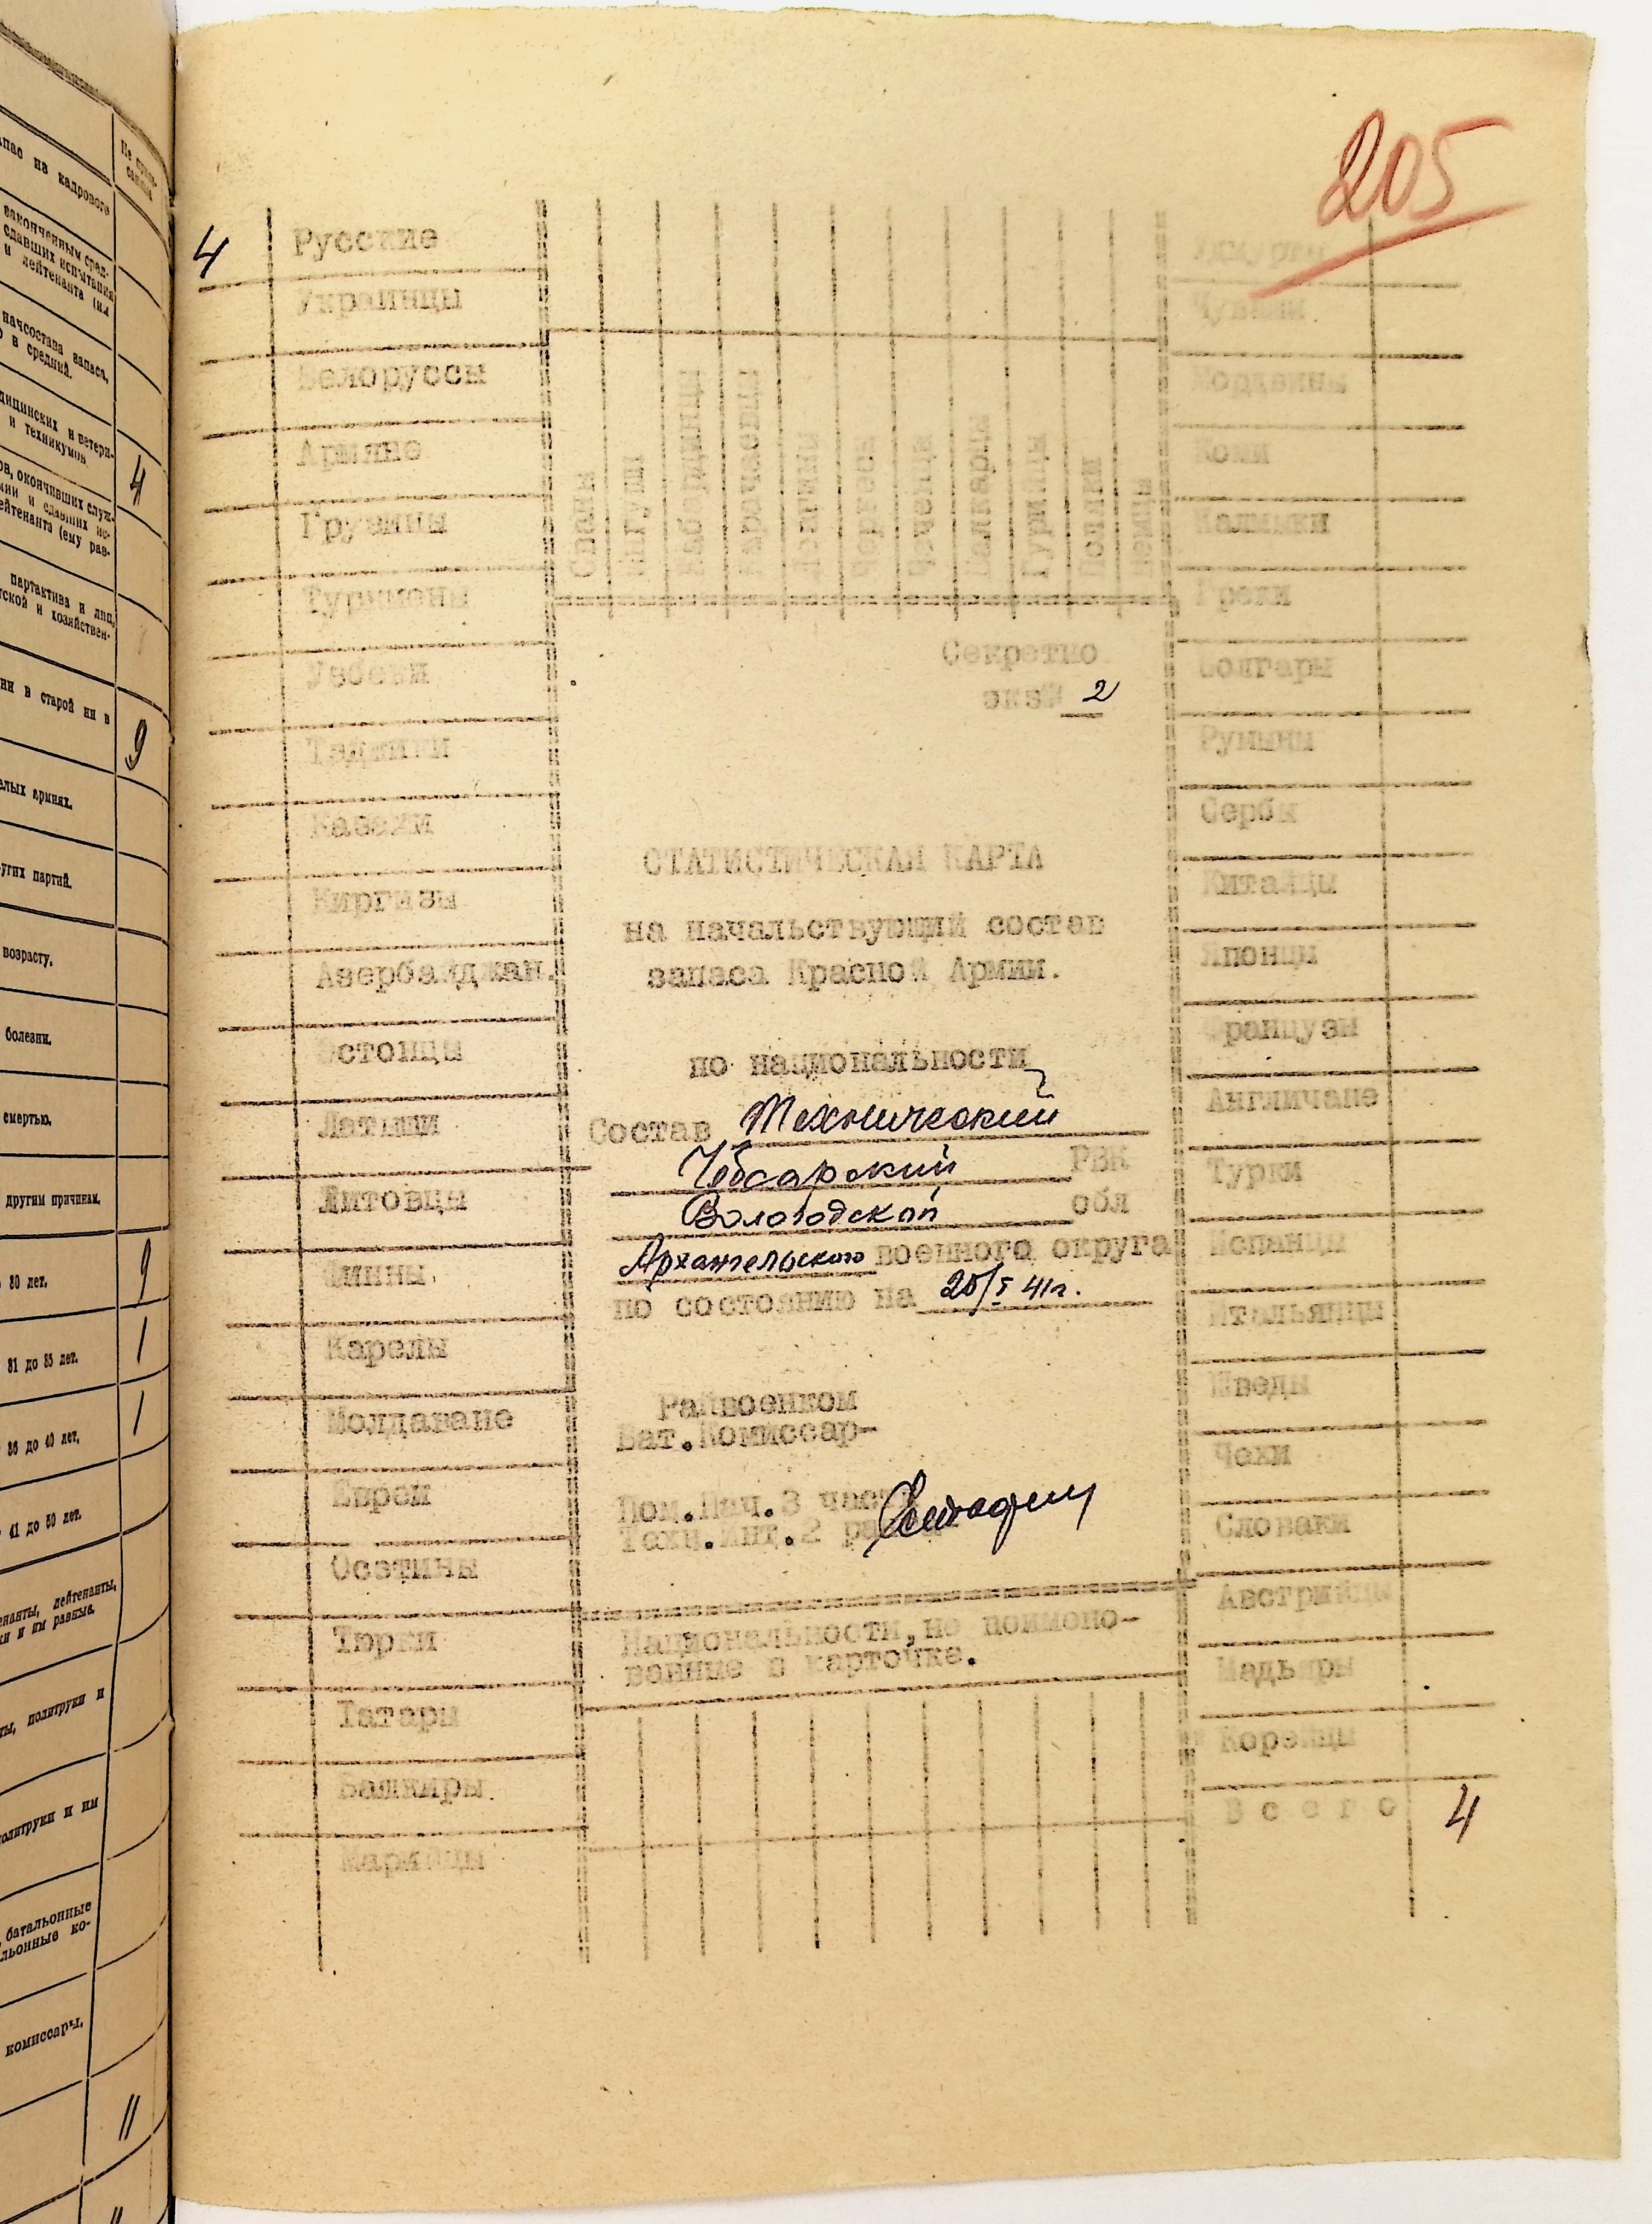 пас на кадрового
законченным сред-
сдавших испытания
и лейтенанта (им
начсостава запаса,
в средний.
дицинских и ветери-
и техникумов
4
ов, окончивших служ-
и сдавших ис-
лейтенанта (ему рав-
партактива и лиц,
тской и хозяйствен-
ни в старой ни в
9
елых армиях.
ругих партий.
возрасту.
болезни.
смертью.
другим причинам.
30 лет.
9
31 до 35 лет.
1
36 до 40 лет.
1
41 до 50 лет.
лейтенанты,
и им равные.
политруки и
политруки и им
батальонные
комиссары.
11
205
4 Русские
Украинцы
Белоруссы
Армяне
Грузины
Туркмены
Узбеки
Таджики
Казахи
Киргизы
Азербайджан.
Эстонцы
Латыши
Литовцы
Финны
Карелы
Молдаване
Евреи
Осетины
Тюрки
Татары
Башкиры
Марийцы
Сваны
Ингуши
Кабардинцы
Карачаевцы
Осетины
Черкесы
Чеченцы
Балкары
Гурийцы
Поляки
Немцы
Секретно
экз№ 2
СТАТИСТИЧЕСКАЯ КАРТА
на начальствующий состав
запаса Красной Армии.
по национальности
Состав Технический
Чебсарский РВК
Вологодской обл
Архангельского военного округа
по состоянию на 25/I 41г.
Райвоенком
Бат.Комиссар-
Пом.Нач.3 части
Техн.Инт.2 ранга
Национальности,не поимено-
ванные в карточке.
Удмурты
Чуваши
Мордвины
Коми
Калмыки
Греки
Болгары
Румыны
Сербы
Китайцы
Японцы
Французы
Англичане
Турки
Испанцы
Итальянцы
Шведы
Чехи
Словаки
Австрийцы
Мадьяры
Корейцы
Всего 4